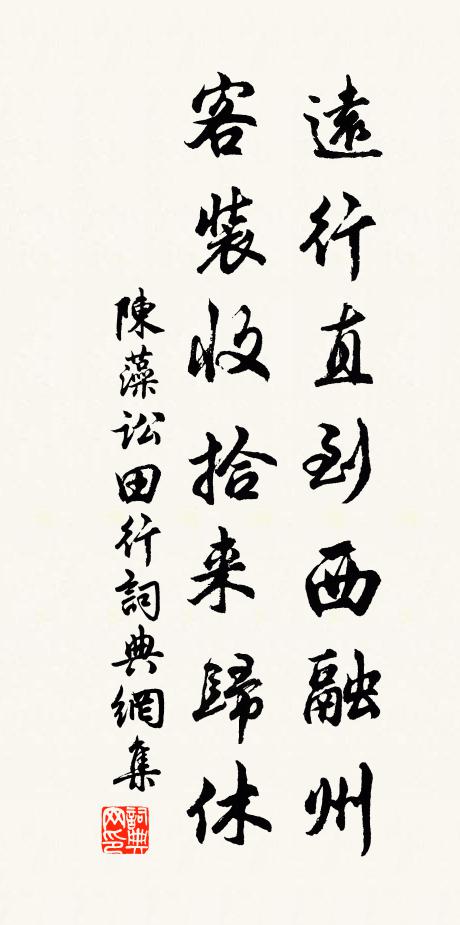 遠行直到西融州
客裝收拾来歸休
陳藻訟田行詞典網集
詞典网印